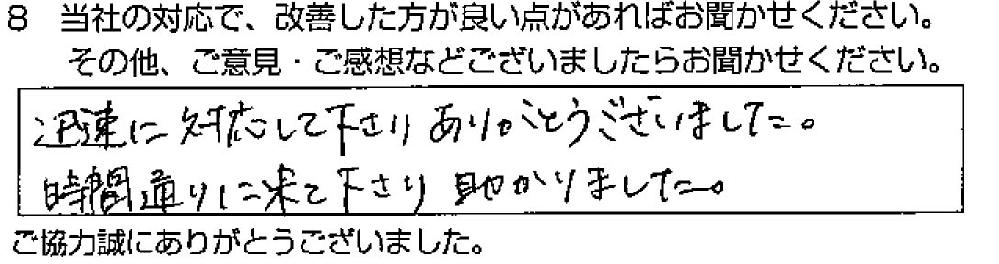 8 当社の対応で、改善した方が良い点があればお聞かせください。
その他、ご意見・ご感想などございましたらお聞かせください。
迅速に対応して下さりありがとうございました。
時間通りに来て下さり助かりました。
ご協力誠にありがとうございました。